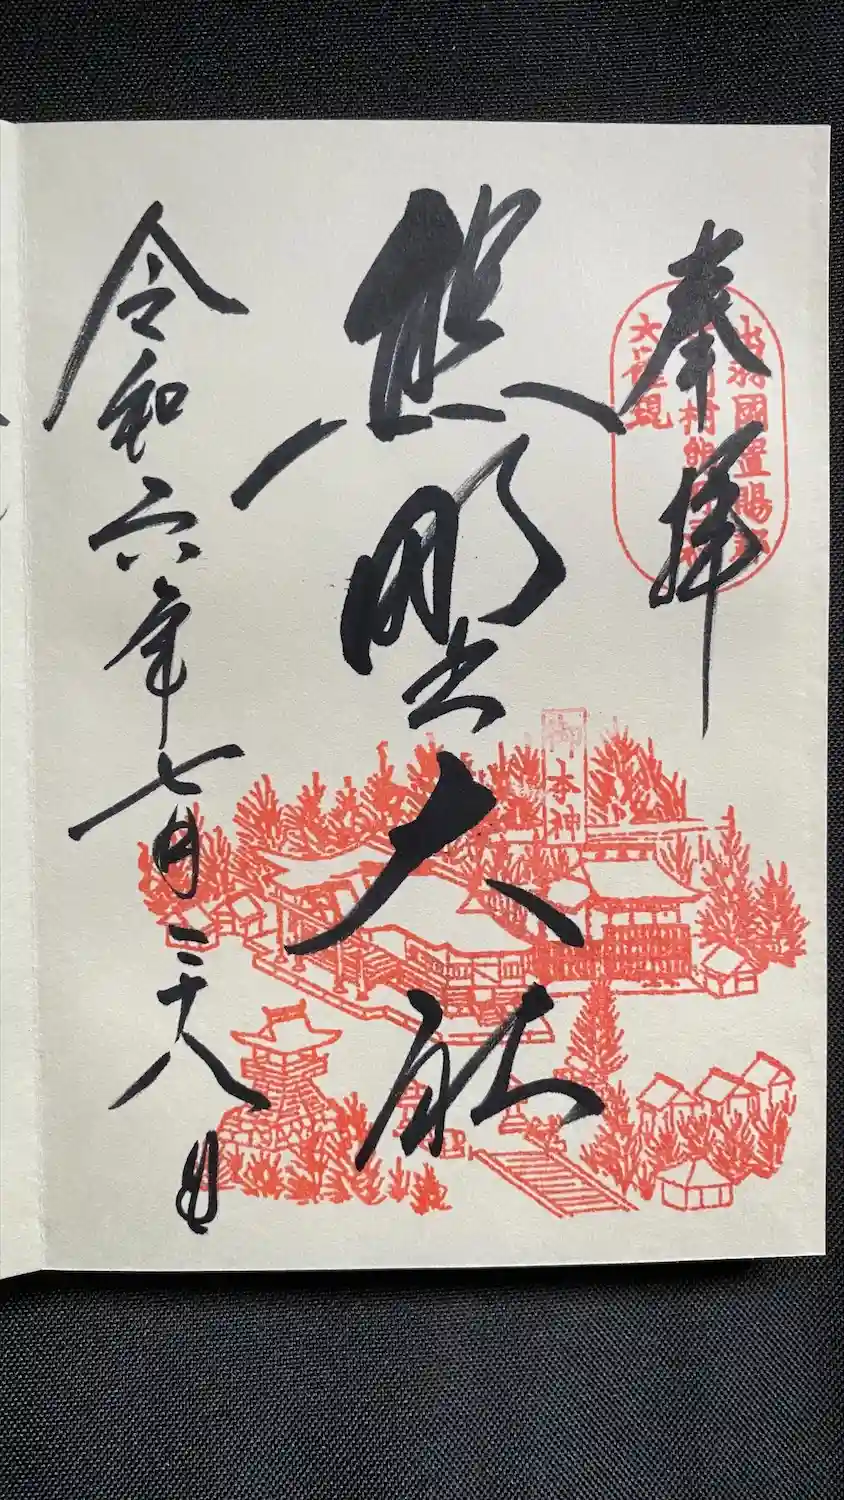 奉拝
出羽國置賜郡
村熊
大權現
熊野大社
本神
令和六年七月二十八日